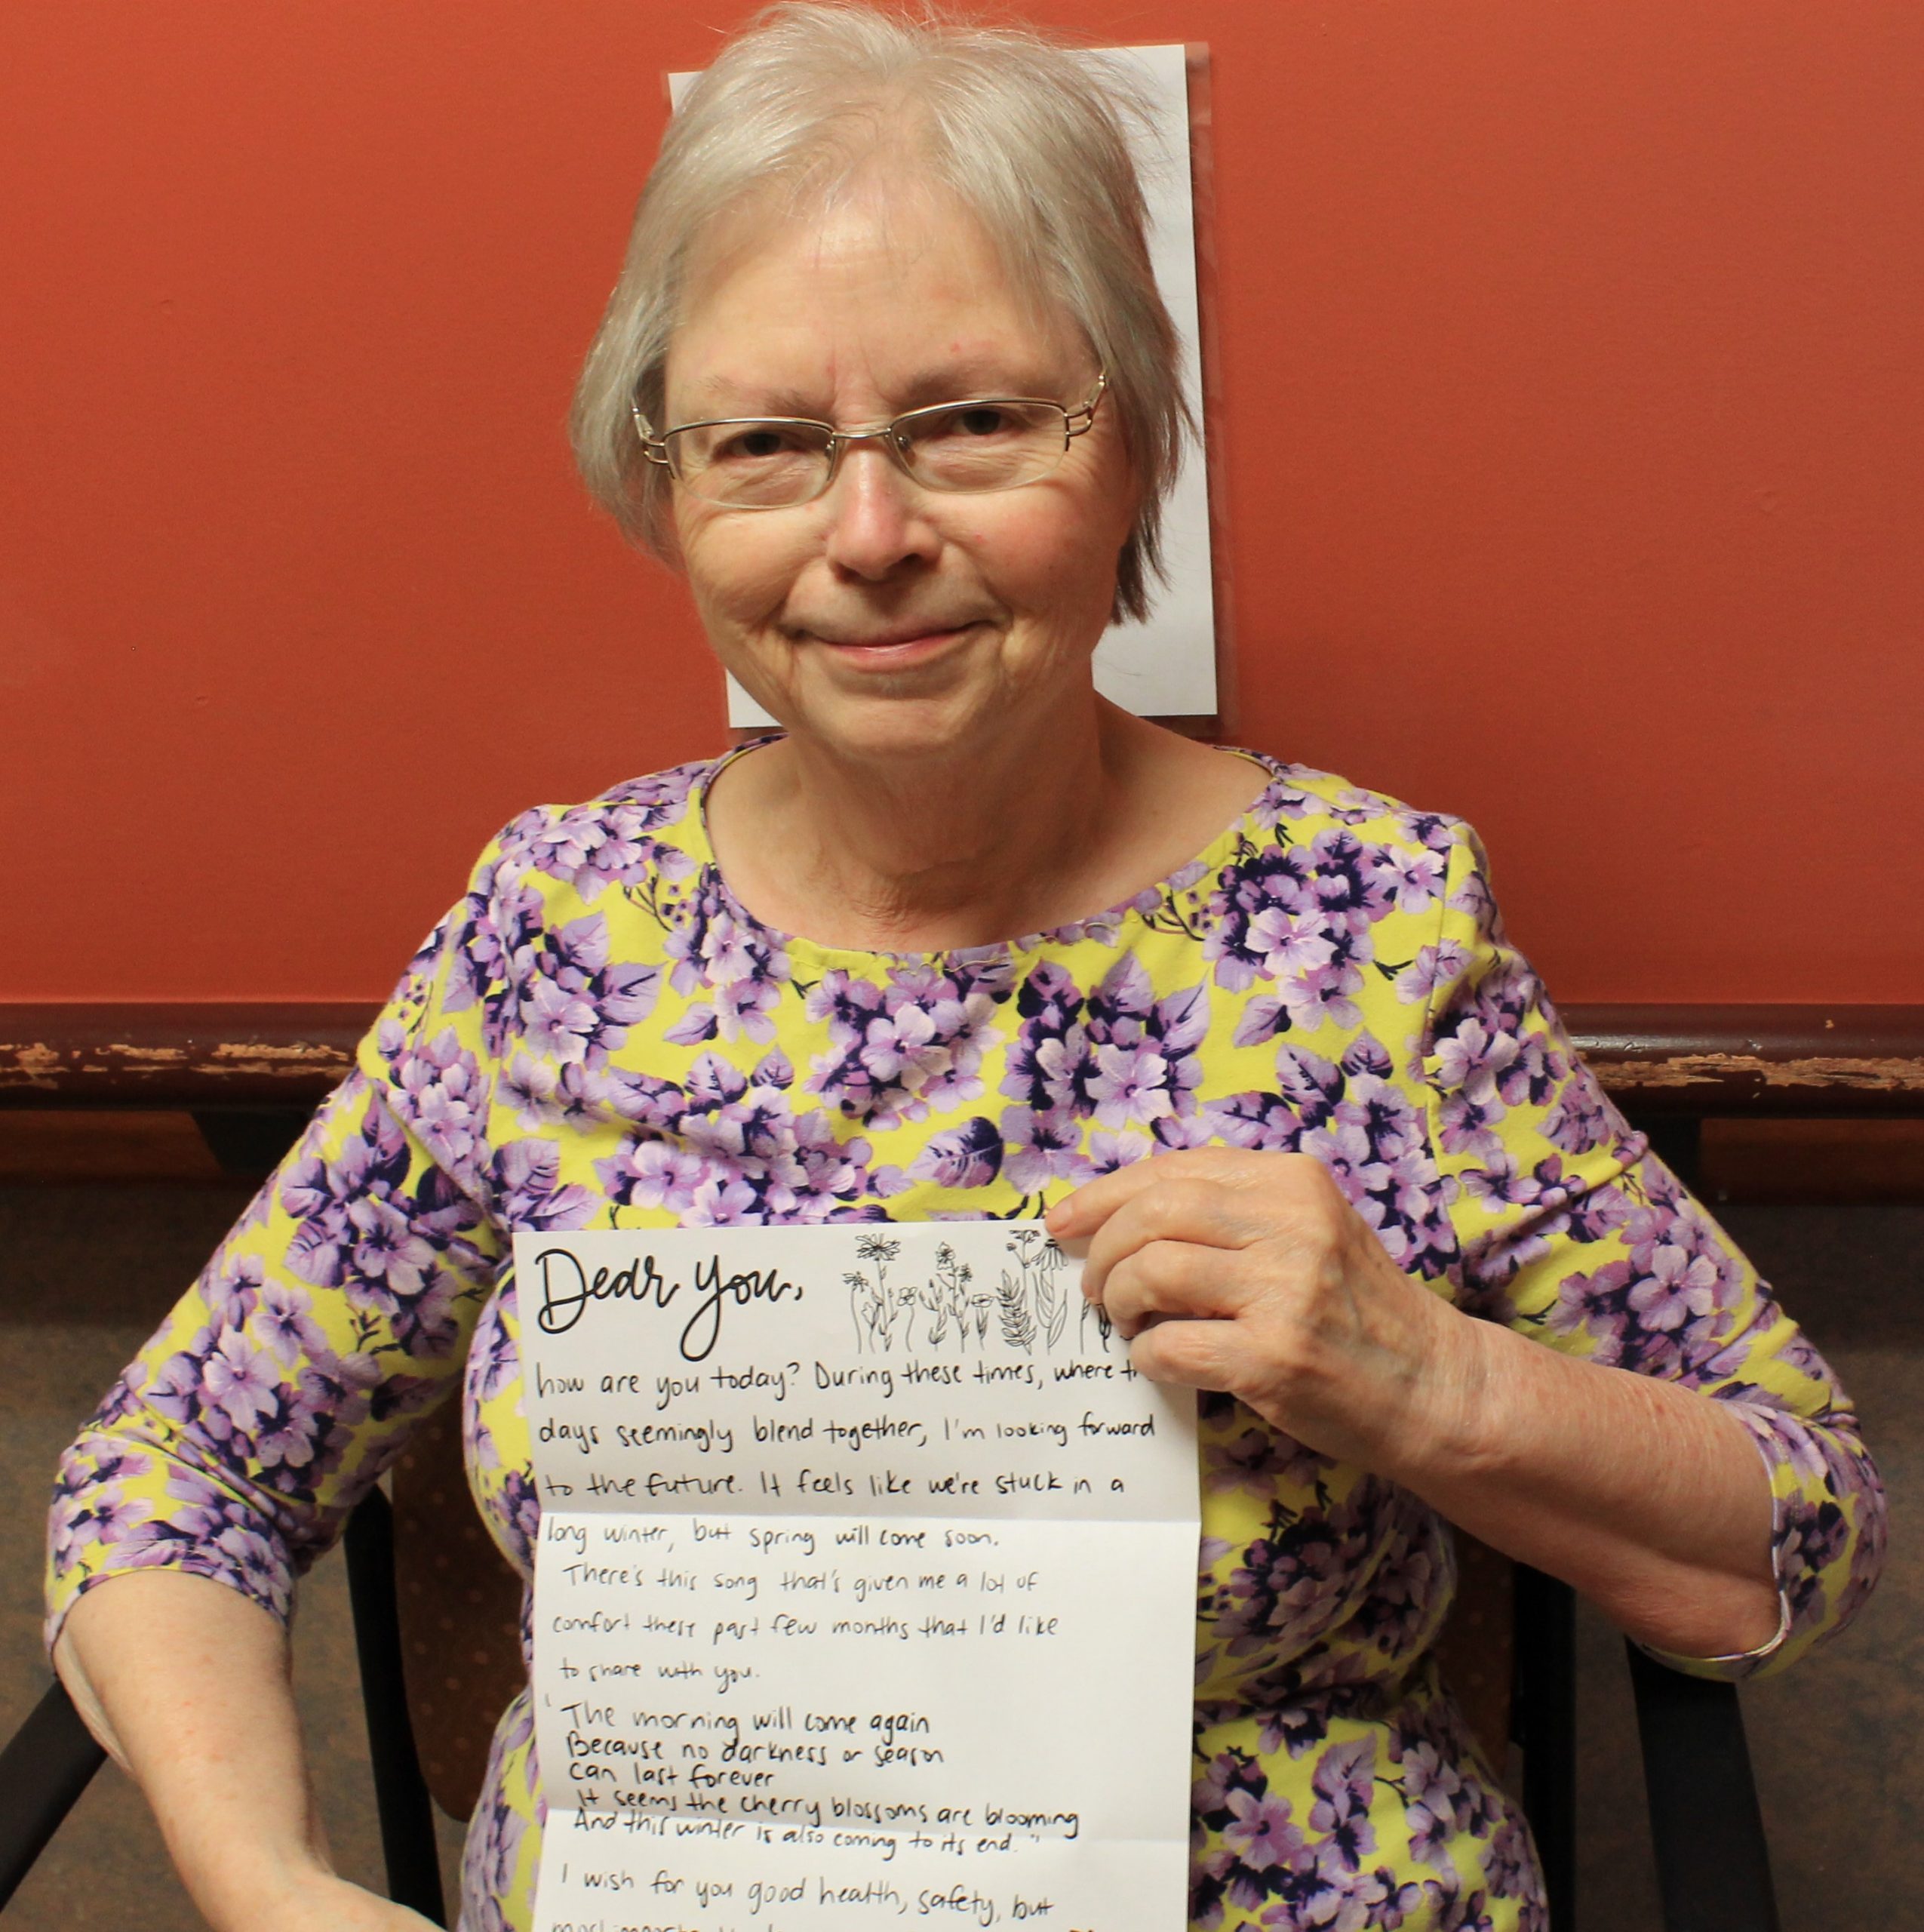 Dear you,
how are you today? During these times, where
days seemingly blend together, I'm looking forward
to the future. It feels like we're stuck in a
long winter, but spring will come soon.
There's this song that's given me a lot of
comfort these past few months that I'd like
to share with you.
"The morning will come again
Because no darkness or season
can last forever
It seems the cherry blossoms are blooming
And this winter is also coming to its end."
I wish for you good health, safety, but